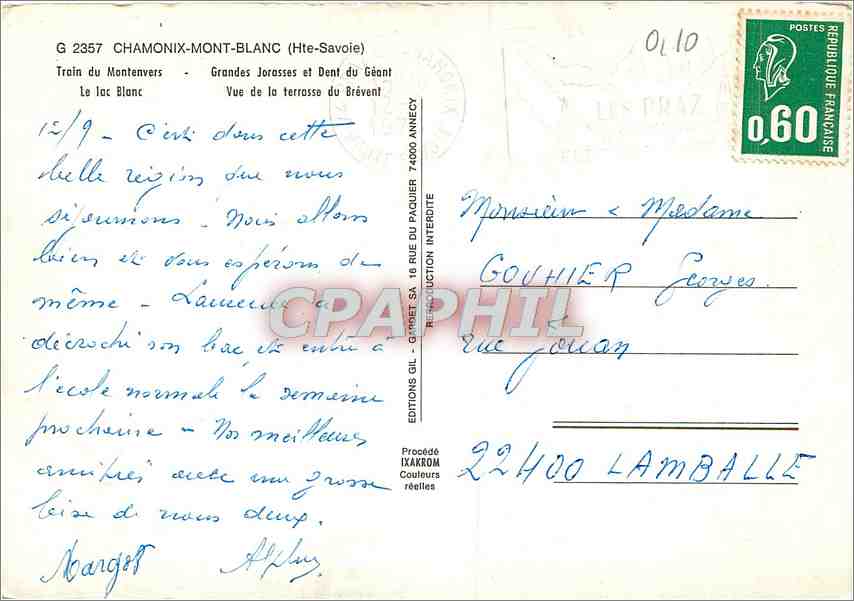 G 2357 CHAMONIX-MONT-BLANC (Hte-Savoie)
Train du Montenvers - Grandes Jorasses et Dent du Géant
Le lac Blanc Vue de la terrasse du Brévent
12/9 - C'est dans cette
belle région que nous
séjournons. Nous allons
bien et vous espérons de
même - a
décroché son bac et entre à
l'école normale la semaine
prochaine - Nos meilleures
amitiés avec une grosse
bise de nous deux.
Margot
EDITIONS GIL - GARDET SA 16 RUE DU PAQUIER 74000 ANNECY
REPRODUCTION INTERDITE
Procédé
IXAKROM
Couleurs
réelles
CPAPHIL
0,10
LES PRAZ
POSTES
RÉPUBLIQUE FRANÇAISE
0,60
Monsieur & Madame
GOUHIER Georges
rue Jouan
22400 LAMBALLE